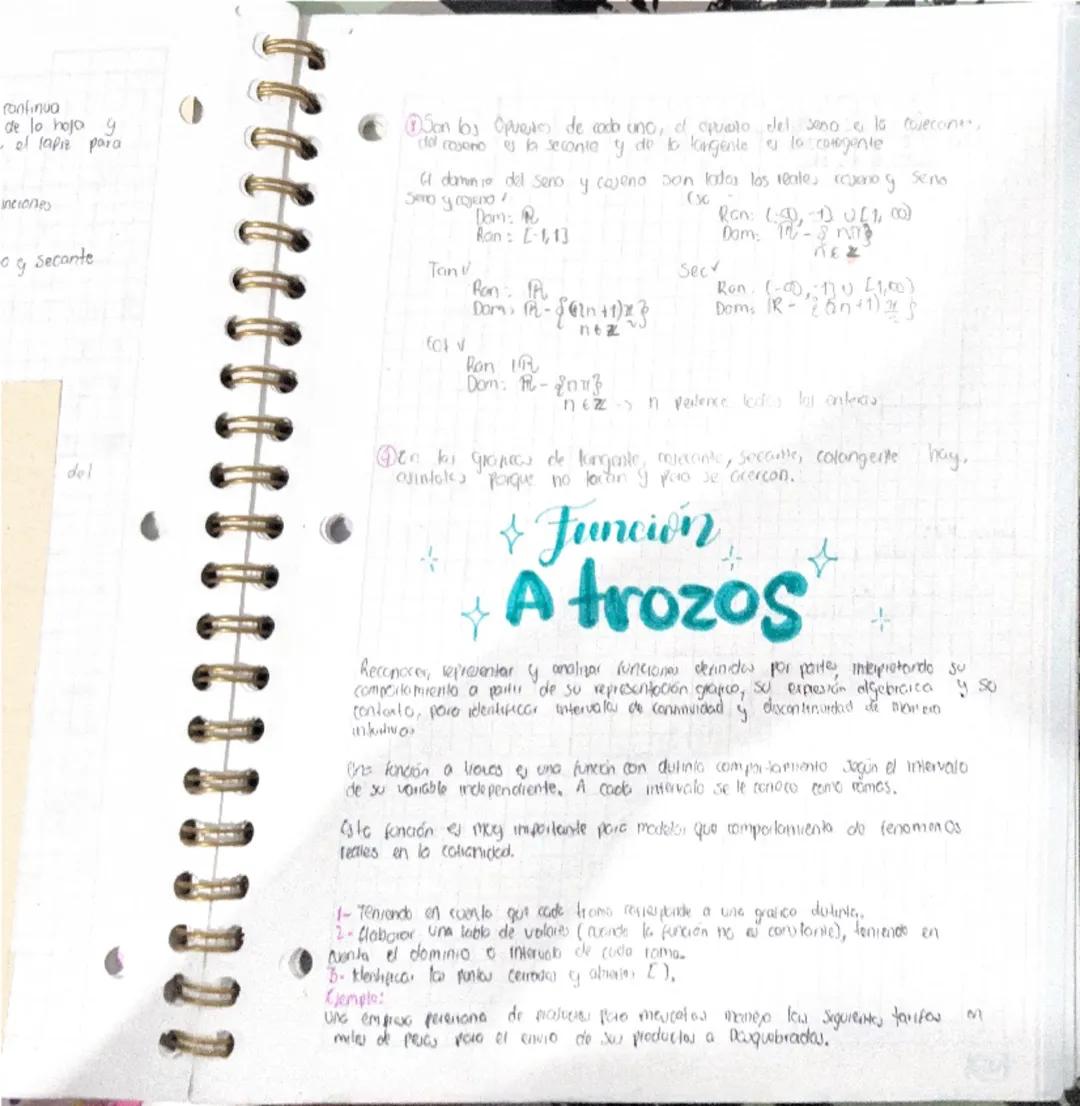 continua
de lo hoja y
el lapiz para
inciones
o y secante
del
③Son los Opuestos de cada uno, el opuesto del seno es la cosecante,
del coseno es la secante y de la tangente es la cotogente
El dominio del seno y coseno son todos los reales coseno y seno
Seno y coseno
Csc
Dom: ℝ
Ran: (-∞, -1] ∪ [1, ∞)
Ran: [-1, 1]
Dom: ℝ - {nπ}
n ∈ ℤ
Tan ✓
Sec ✓
Ran: ℝ
Ran: (-∞, -1] ∪ [1, ∞)
Dom: ℝ - {(2n+1)π/2}
Dom: ℝ - {(2n+1)π/2}
n ∈ ℤ
Cot ✓
Ran ℝ
Dom: ℝ - {nπ}
n ∈ ℤ -> n pertenece todos los enteros
④En las graficas de tangente, cosecante, secante, cotangente hay.
asintotas porque no tocan y pero se acercan.
Función
A trozos
Reconocer, representar y analizar funciones definidas por partes, interpretando su
comportamiento a partir de su representación gráfica, su expresión algebraica y su
contexto, para identificar intervalos de continuidad y discontinuidad de manera
intuitiva
Una función a trozos es una función con distinto comportamiento según el intervalo
de su variable independiente. A cada intervalo se le conoce como ramas.
Esta función es muy importante para modelar que comportamiento de fenomenos
reales en la cotianidad.
1- Teniendo en cuenta que cada tramo corresponde a una grafica distinta.
2- Elaborar una tabla de valores (cuando la función no es constante), teniendo en
cuenta el dominio o intervalo de cada rama.
3- Identificar los puntos cerrados y abiertos [ ),
Ejemplo:
Una empresa pereirana de productos para mascotas maneja las siguientes tarifas en
miles de pesos para el envio de sus productos a Dosquebradas.